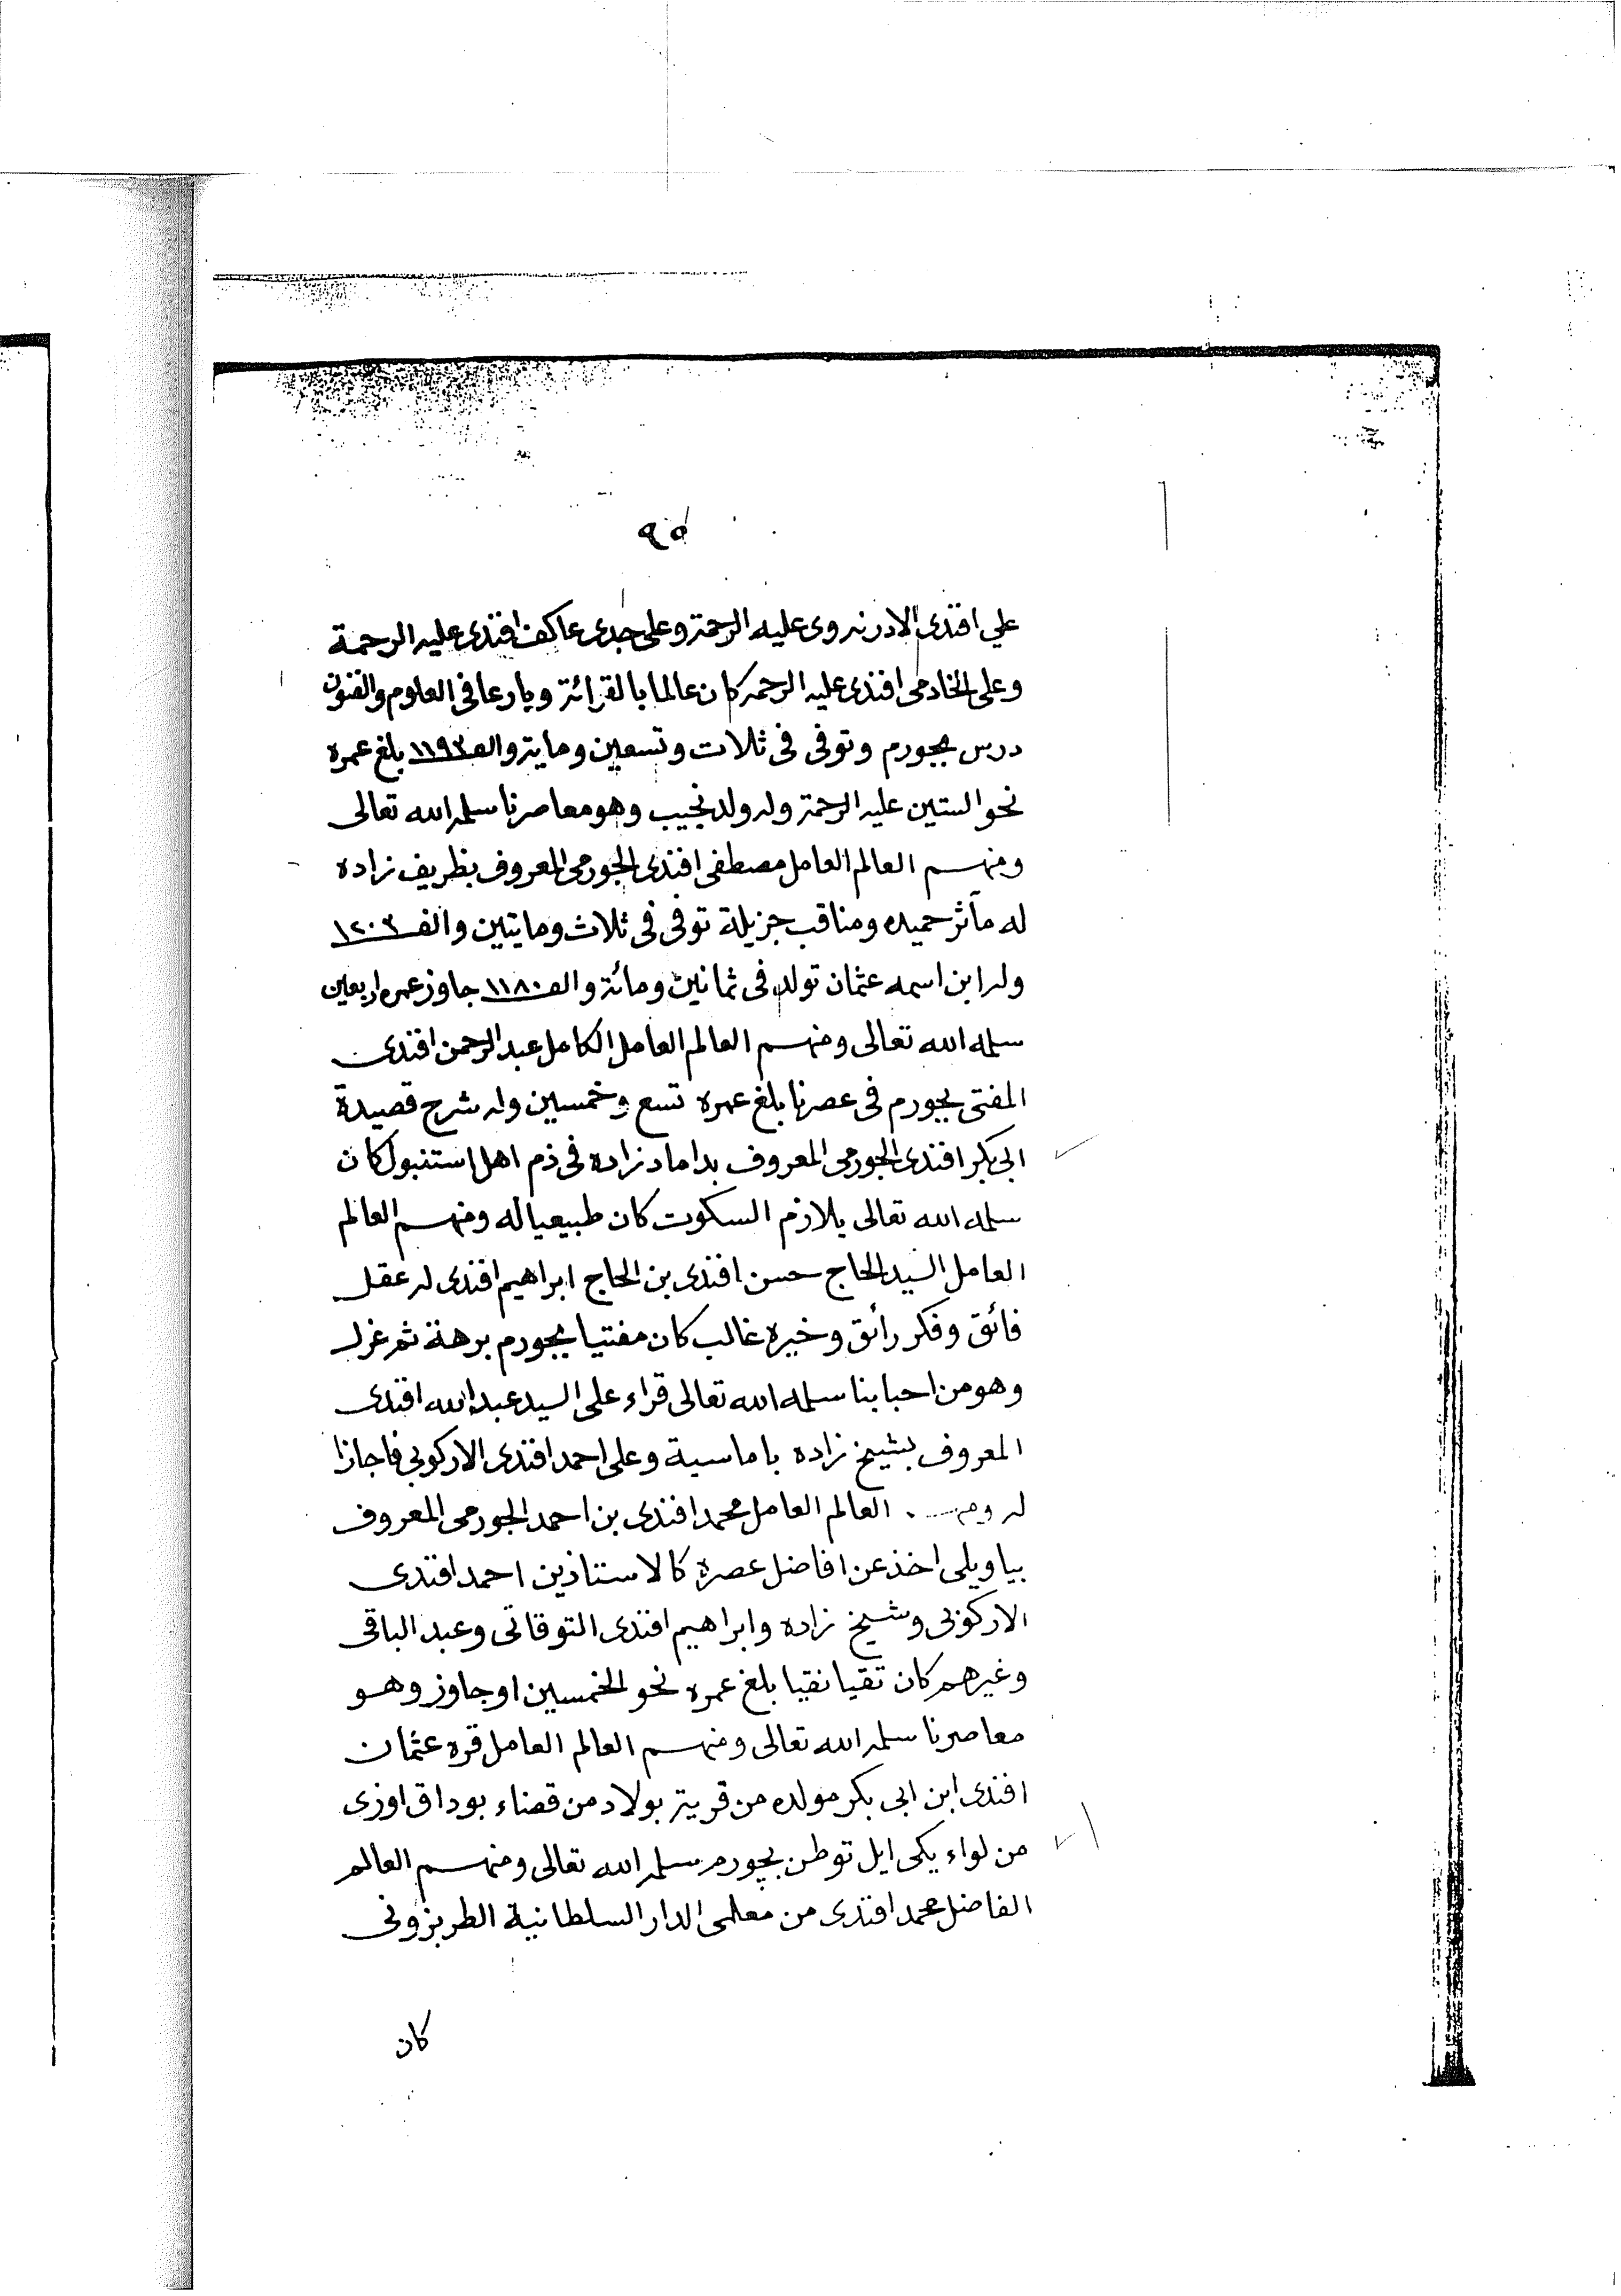 ٩٥
علي افندى الادرنه وى عليه الرحمة وعلى جدى عاكف افندى عليه الرحمة
وعلى الخادمى افندى عليه الرحمه كان عالما بالقرائة وبارعا فى العلوم والفنون
درس بجورم وتوفى فى ثلاث وتسعين وماية والف ١١٩٣ بلغ عمره
نحو الستين عليه الرحمة وله ولد نجيب وهو معاصرنا سلمه الله تعالى
ومنهم العالم العامل مصطفى افندى الجورمى المعروف بظريف زاده
له مآثر حميده ومناقب جزيلة توفى فى ثلاث ومايتين والف ١٢٠٣
وله ابن اسمه عثمان تولد فى ثمانين ومائة والف ١١٨٠ جاوز عمره اربعين
سلمه الله تعالى ومنهم العالم العامل الكامل عبد الرحمن افندى
المفتى بجورم فى عصرنا بلغ عمره تسع وخمسين وله شرح قصيدة
ابى بكر افندى الجورمى المعروف بداماد زاده فى ذم اهل استنبول كان
سلمه الله تعالى يلازم السكوت كان طبيعيا له ومنهم العالم
العامل السيد الحاج حسن افندى بن الحاج ابراهيم افندى له عقل
فائق وفكر رائق وخيره غالب كان مفتيا بجورم برهة ثم عزل
وهو من احبابنا سلمه الله تعالى قراء على السيد عبد الله افندى
المعروف بشيخ زاده باماسية وعلى احمد افندى الاركوبى فاجازا
له ومنهم العالم العامل محمد افندى بن احمد الجورمى المعروف
بياويلى اخذ عن افاضل عصره كالاستاذين احمد افندى
الاركوبى وشيخ زاده وابراهيم افندى التوقاتى وعبد الباقى
وغيرهم كان تقيا نقيا بلغ عمره نحو الخمسين او جاوز وهو
معاصرنا سلمه الله تعالى ومنهم العالم العامل قره عثمان
افندى ابن ابى بكر مولده من قرية بولاد من قضاء بوداق اوزى
من لواء يكى ايل توطن بچورم سلمه الله تعالى ومنهم العالم
الفاضل محمد افندى من معلمى الدار السلطانية الطربزونى
كان